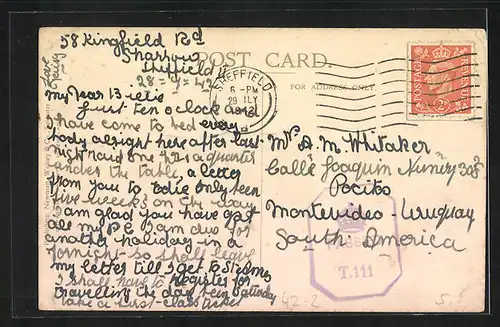 58 Kingfield Rd
Sharrow
Sheffield
28-7=42
POST CARD.
FOR ADDRESS ONLY.
SHEFFIELD
6-PM
29 JLY
POSTAGE REVENUE
2D
My Dear Bietie
Just ten o'clock and
I have come to bed every
body alright here after last
night raid one 42 1/2 a quarter
under the table, a letter
from you to Edie only ten
five weeks on the way
I am glad you have got
all my P.C I am due for
another holiday in a
fortnight so shall leave
my letter till I get to St Anns
I shall have to register for
travelling the day been Saturday
take a first-class ticket
Mr A.M. Whitaker
Calle Joaquin Nuñez
Pocito
Montevideo - Uruguay
South America
T.111
42-2